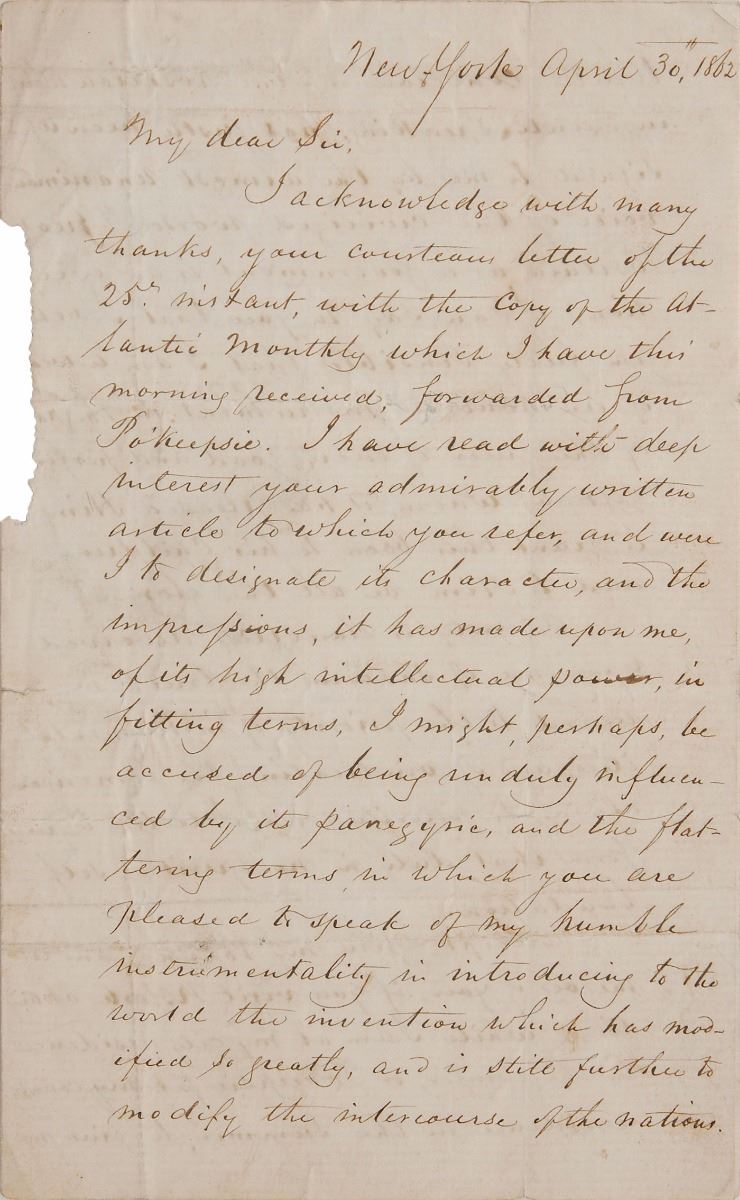 New-York April 30th, 1862
My dear Sir,
I acknowledge with many
thanks, your courteous letter of the
25th instant, with the Copy of the At-
lantic Monthly which I have this
morning received, forwarded from
Po'keepsie. I have read with deep
interest your admirably written
article to which you refer, and were
I to designate its character, and the
impressions, it has made upon me,
of its high intellectual power, in
fitting terms, I might, perhaps, be
accused of being unduly influen-
ced by its panegyric, and the flat-
tering terms in which you are
pleased to speak of my humble
instrumentality in introducing to the
world the invention which has mod-
ified so greatly, and is still further to
modify the intercourse of the nations.